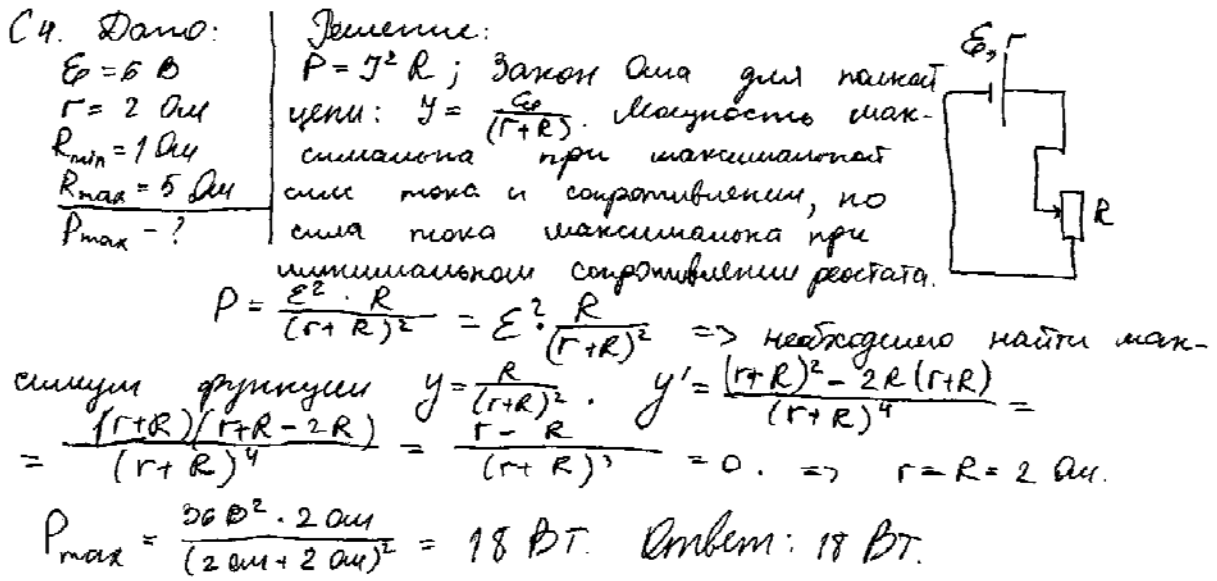 С4. Дано:
ℰ = 6 В
r = 2 Ом
Rmin = 1 Ом
Rmax = 5 Ом
Pmax - ?
Решение:
P = J² R ; Закон Ома для полной
цепи: J = ℰ/(r+R). Мощность мак-
симальна при максимальной
силе тока и сопротивлении, но
сила тока максимальна при
минимальном сопротивлении реостата.
ℰ, r
R
P = ℰ² · R/(r + R)² = ℰ² · R/(r+R)² => необходимо найти мак-
симум функции y = R/(r+R)² . y' = ((r+R)² - 2R(r+R))/(r+R)⁴ =
= (r+R)(r+R-2R)/(r+R)⁴ = (r - R)/(r+R)³ = 0. => r = R = 2 Ом.
Pmax = 36 В² · 2 Ом/(2 Ом + 2 Ом)² = 18 Вт. Ответ: 18 Вт.